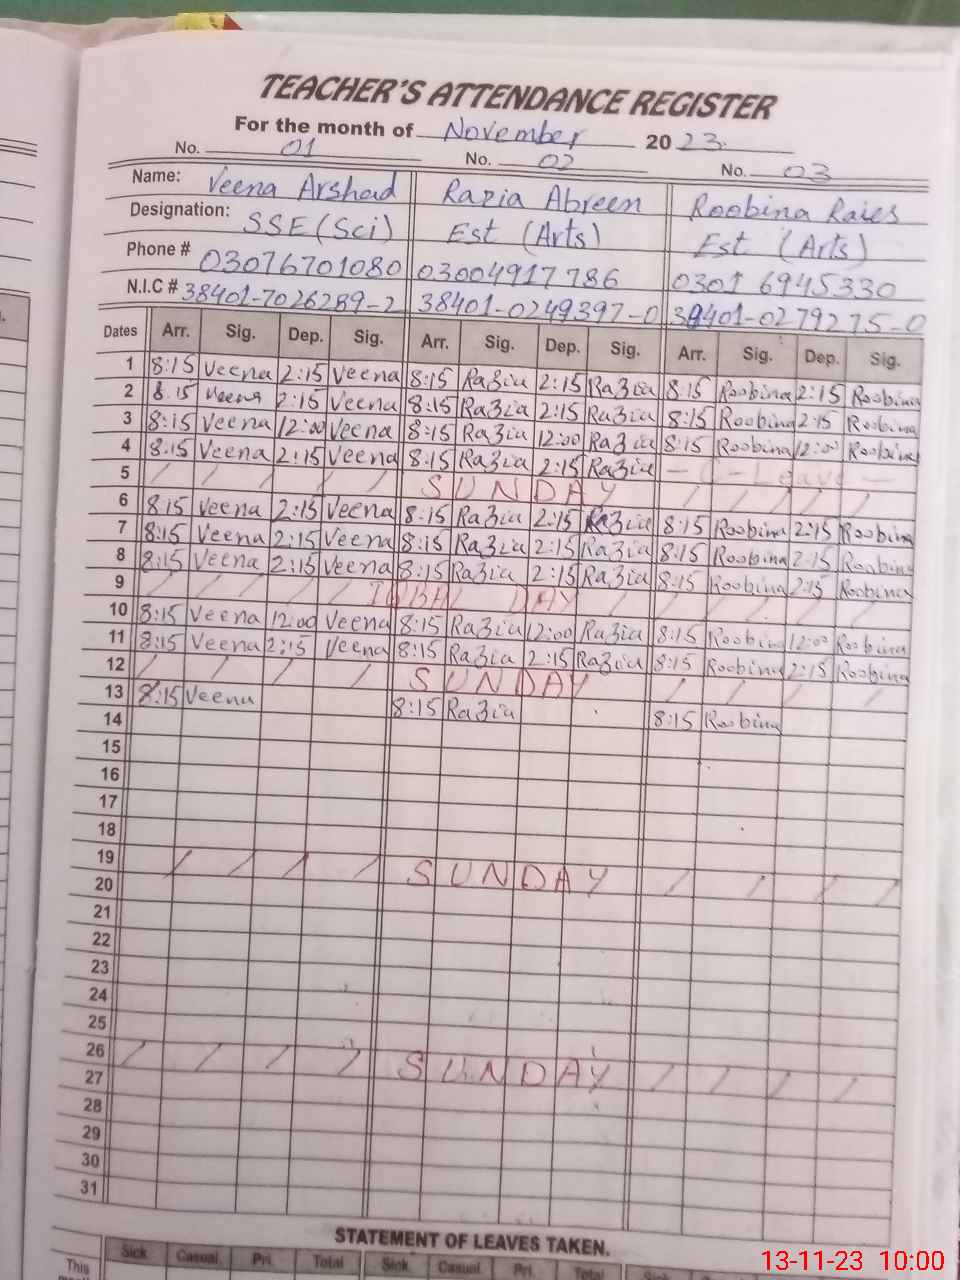 TEACHER'S ATTENDANCE REGISTER
For the month of November 2023.
No. 01 No. 02 No. 03
Name: Veena Arshad Razia Abreen Roobina Raies
Designation: SSE (Sci) Est (Arts) Est (Arts)
Phone # 03076701080 03004917786 0301 6945330
N.I.C # 38401-7026289-2 38401-0249397-0 38401-0279275-0
Dates Arr. Sig. Dep. Sig. Arr. Sig. Dep. Sig. Arr. Sig. Dep. Sig.
1 8:15 Veena 2:15 Veena 8:15 Ra3ia 2:15 Ra3ia 8:15 Roobina 2:15 Roobina
2 8.15 Veena 2:15 Veena 8:15 Ra3ia 2:15 Ra3ia 8:15 Roobina 2:15 Roobina
3 8:15 Veena 12:00 Veena 8:15 Ra3ia 12:00 Ra3ia 8:15 Roobina 12:00 Roobina
4 8:15 Veena 2:15 Veena 8:15 Ra3ia 2:15 Ra3ia - C-Leave -
5 / / / / / SUNDAY / / / /
6 8:15 Veena 2:15 Veena 8:15 Ra3ia 2:15 Ra3ia 8:15 Roobina 2:15 Roobina
7 8:15 Veena 2:15 Veena 8:15 Ra3ia 2:15 Ra3ia 8:15 Roobina 2:15 Roobina
8 8:15 Veena 2:15 Veena 8:15 Ra3ia 2:15 Ra3ia 8:15 Roobina 2:15 Roobina
9 / / / / / IQBAL DAY / / / / /
10 8:15 Veena 12:00 Veena 8:15 Ra3ia 12:00 Ra3ia 8:15 Roobina 12:00 Roobina
11 8:15 Veena 2:15 Veena 8:15 Ra3ia 2:15 Ra3ia 8:15 Roobina 2:15 Roobina
12 / / / / SUNDAY / / / /
13 8:15 Veena 8:15 Ra3ia 8:15 Roobina
14
15
16
17
18
19 / / / / SUNDAY / / / /
20
21
22
23
24
25
26 / / / / SUNDAY / / / /
27
28
29
30
31
STATEMENT OF LEAVES TAKEN.
Sick Casual. Pri. Total Sick Casual Pri. Total Sick
This
13-11-23 10:00